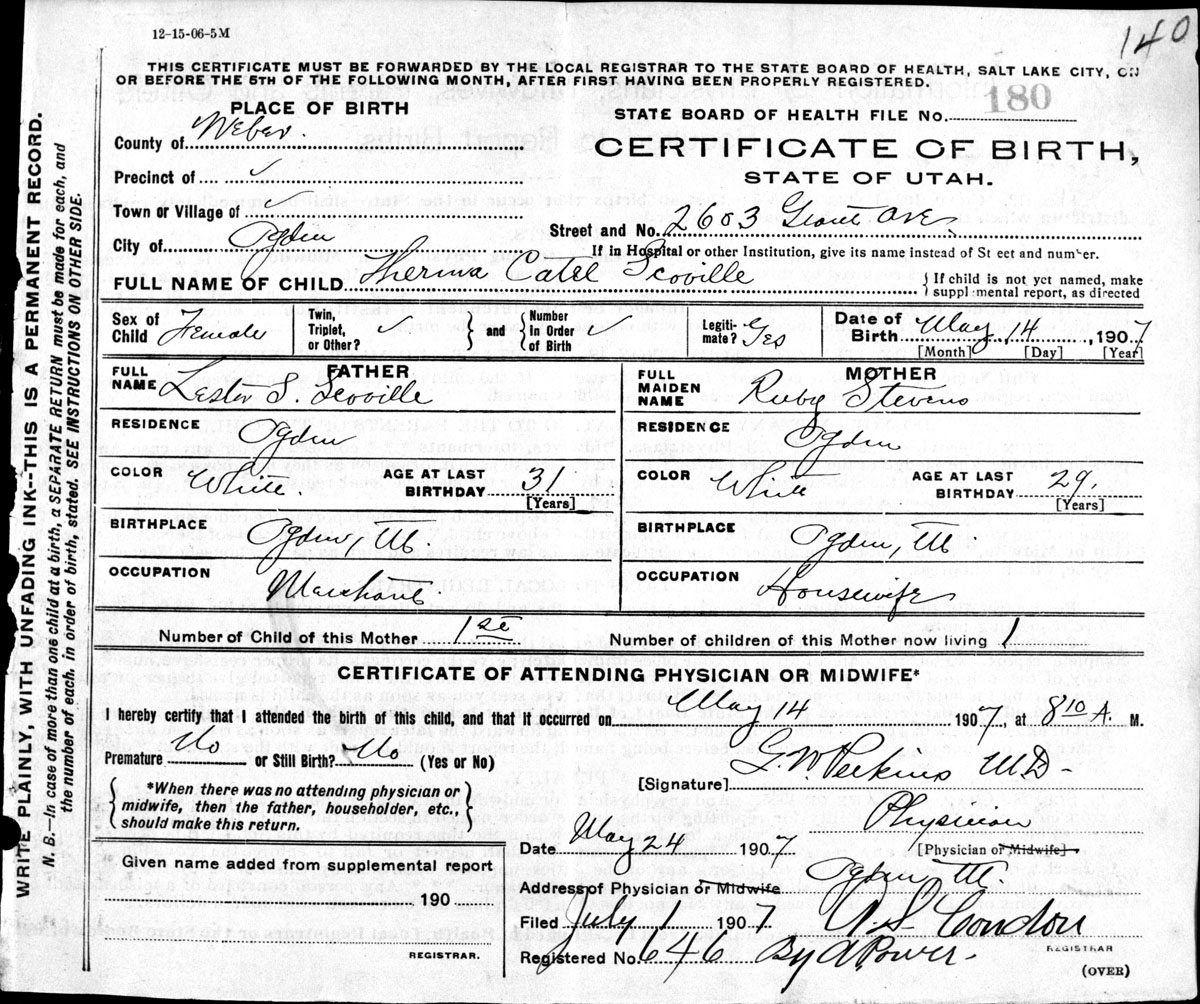 12-15-06-5M
140
THIS CERTIFICATE MUST BE FORWARDED BY THE LOCAL REGISTRAR TO THE STATE BOARD OF HEALTH, SALT LAKE CITY, ON
OR BEFORE THE 5TH OF THE FOLLOWING MONTH, AFTER FIRST HAVING BEEN PROPERLY REGISTERED.
WRITE PLAINLY, WITH UNFADING INK-THIS IS A PERMANENT RECORD.
N. B.—In case of more than one child at a birth, a SEPARATE RETURN must be made for each, and
the number of each, in order of birth, stated. SEE INSTRUCTIONS ON OTHER SIDE.
PLACE OF BIRTH
County of Weber.
Precinct of
Town or Village of
City of Ogden
STATE BOARD OF HEALTH FILE No. 180
CERTIFICATE OF BIRTH,
STATE OF UTAH.
Street and No. 2603 Ave
If in Hospital or other Institution, give its name instead of St eet and number.
FULL NAME OF CHILD Therma Scoville
If child is not yet named, make
suppl mental report, as directed
Sex of Child Female
Twin, Triplet, or Other?
and
Number In Order of Birth
Legiti- mate? Yes
Date of Birth May 14, 1907
[Month] [Day] [Year]
FATHER
FULL NAME Lester S. Scoville
RESIDENCE Ogden
COLOR White.
AGE AT LAST BIRTHDAY 31
[Years]
BIRTHPLACE Ogden, Ut.
OCCUPATION Merchant
MOTHER
FULL MAIDEN NAME Ruby Stevens
RESIDENCE Ogden
COLOR White
AGE AT LAST BIRTHDAY 29.
[Years]
BIRTHPLACE Ogden, Ut.
OCCUPATION Housewife
Number of Child of this Mother 1st
Number of children of this Mother now living 1
CERTIFICATE OF ATTENDING PHYSICIAN OR MIDWIFE*
I hereby certify that I attended the birth of this child, and that it occurred on May 14 1907, at 8 10 A. M.
Premature No or Still Birth? No (Yes or No)
*When there was no attending physician or
midwife, then the father, householder, etc.,
should make this return.
[Signature] G. W. Perkins M.D.
Physician
[Physician or Midwife]
Date May 24 1907
Address of Physician or Midwife Ogden Ut.
Given name added from supplemental report
190
REGISTRAR.
Filed July 1 1907 Condon
Registered No. 646 By A Power.
REGISTRAR
(OVER)